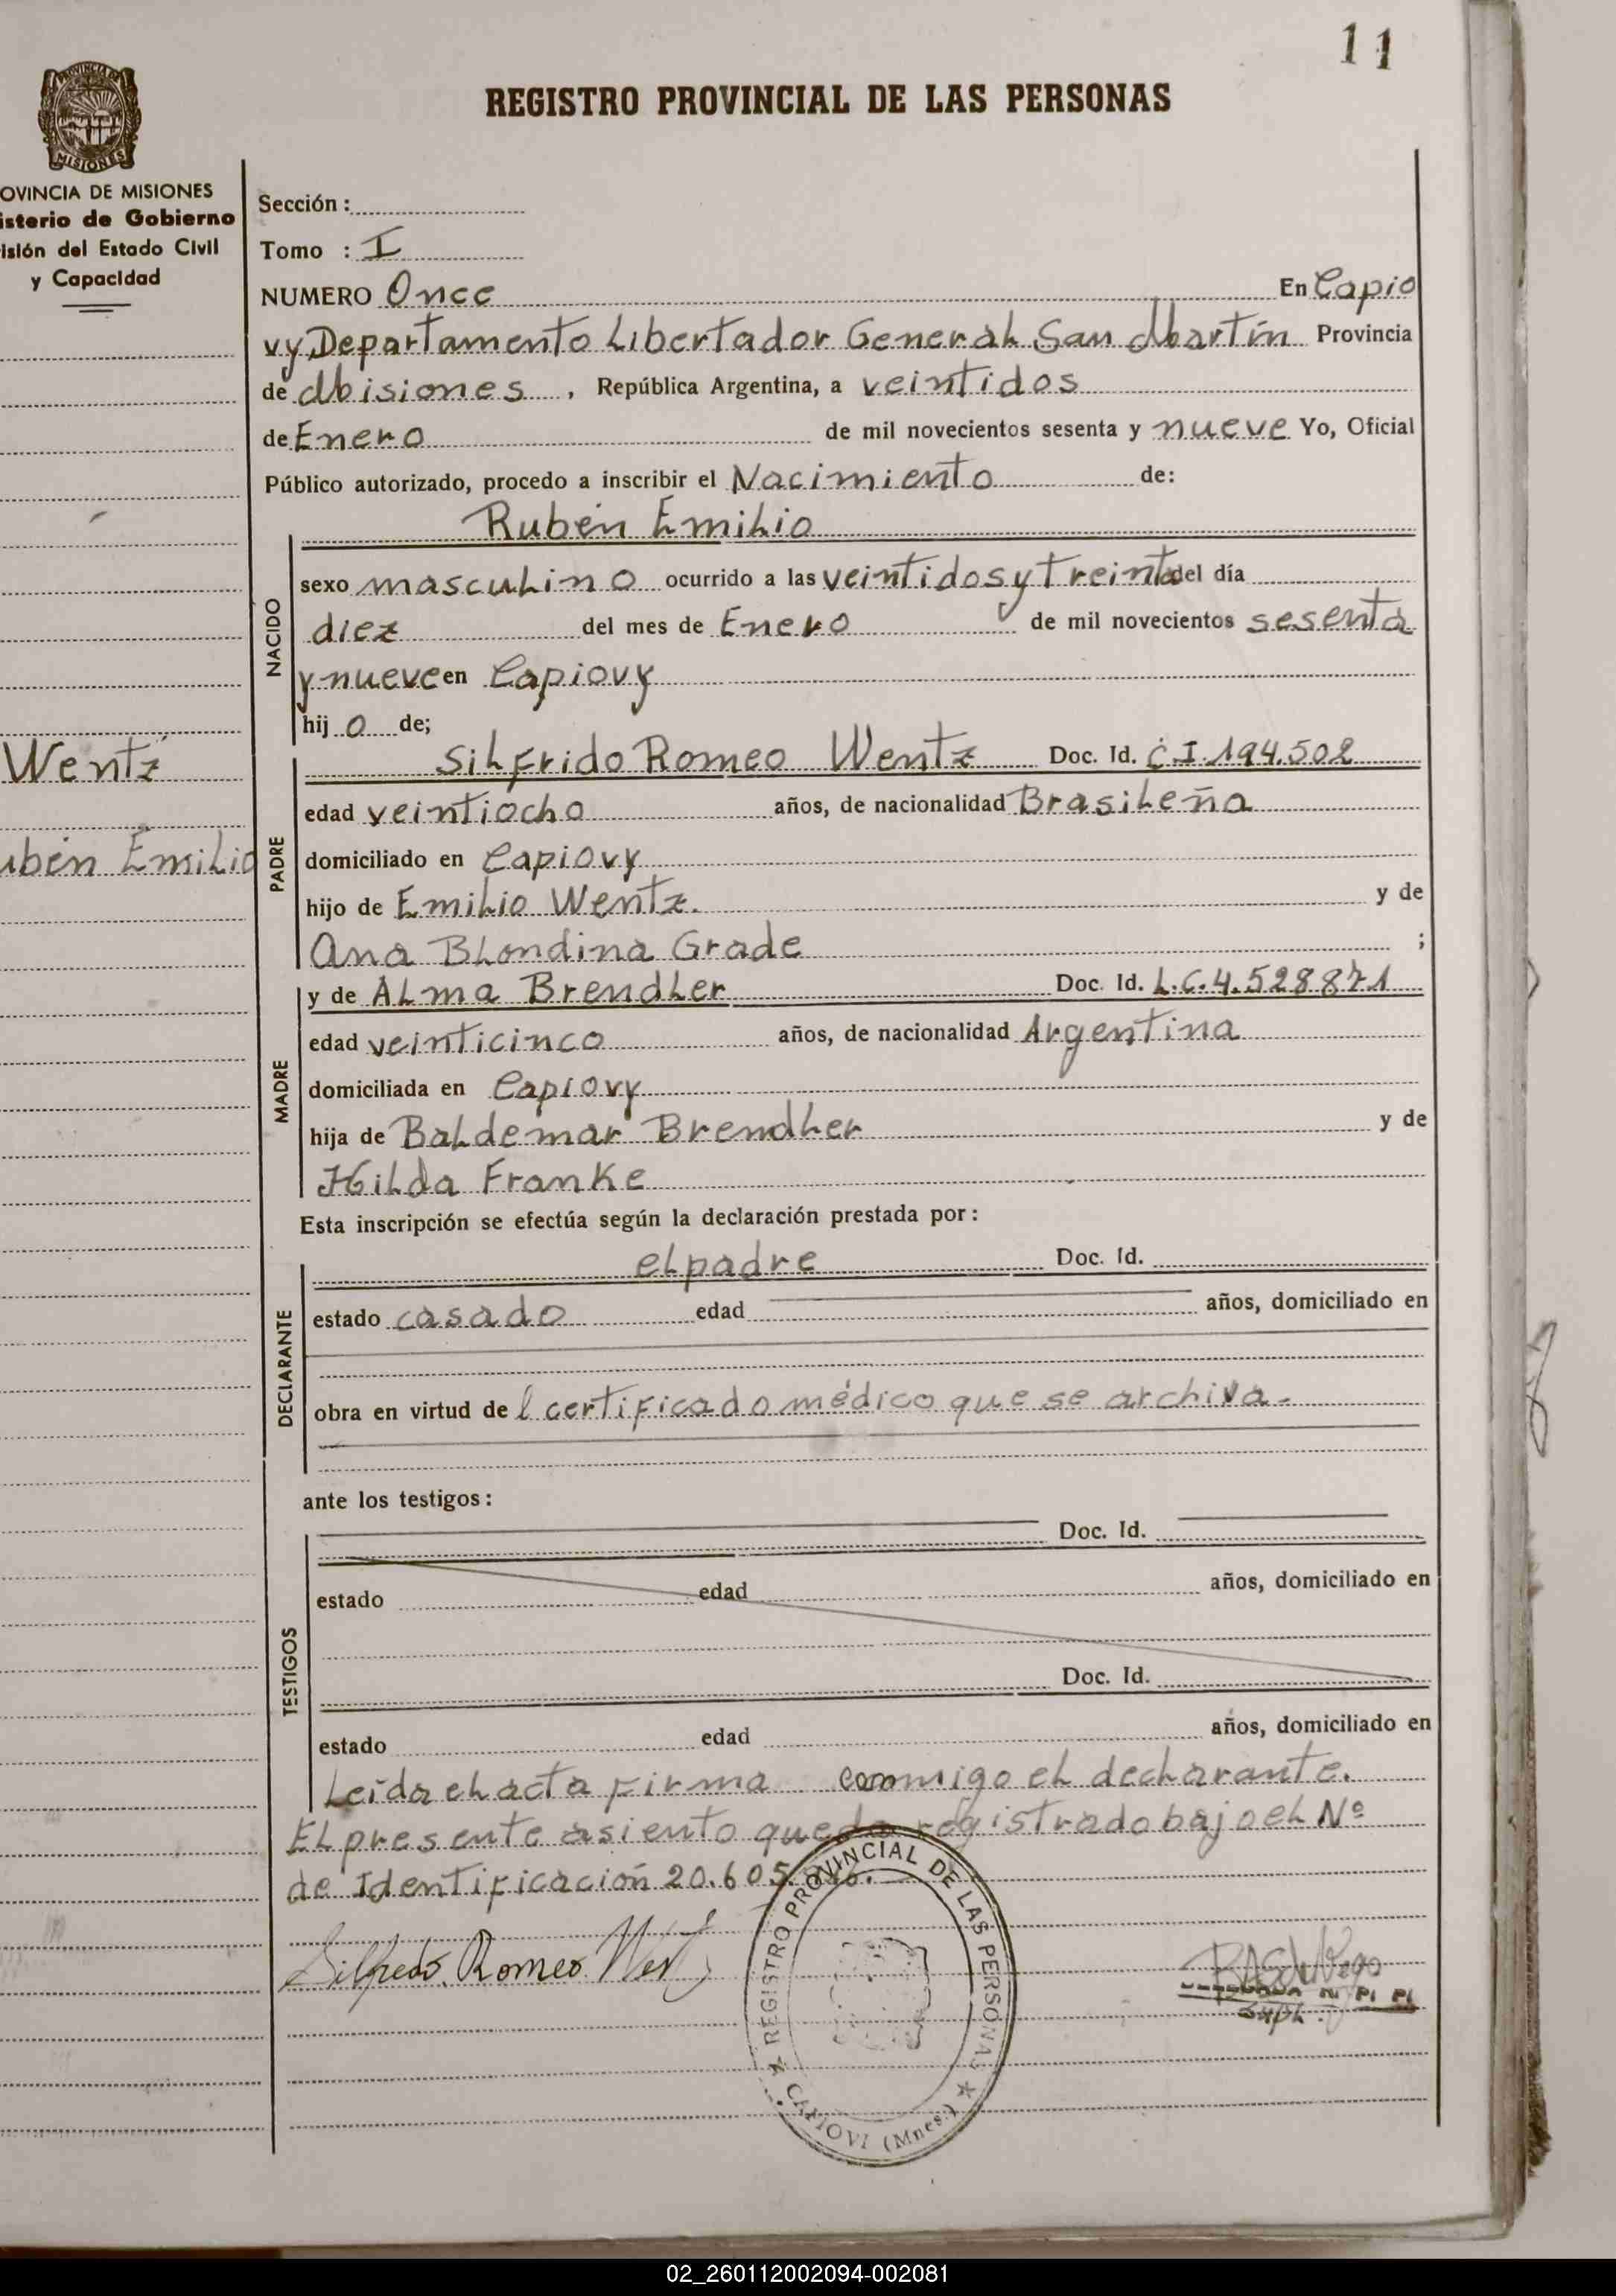 11
REGISTRO PROVINCIAL DE LAS PERSONAS
PROVINCIA DE
MISIONES
OVINCIA DE MISIONES
isterio de Gobierno
isión del Estado Civil
y Capacidad
Wentz
ubén Emilio
Sección:
Tomo : I
NUMERO Once En Capio
vy, Departamento Libertador General San Martín Provincia
de Misiones, República Argentina, a veintidos
de Enero de mil novecientos sesenta y nueve Yo, Oficial
Público autorizado, procedo a inscribir el Nacimiento de:
Rubén Emilio
NACIDO
sexo masculino ocurrido a las veintidos y treinta del día
diez del mes de Enero de mil novecientos sesenta
y nueve en Capiovy
hij o de;
PADRE
Silfrido Romeo Wentz Doc. Id. C.I. 194.502
edad veintiocho años, de nacionalidad Brasileña
domiciliado en Capiovy
hijo de Emilio Wentz. y de
Ana Blondina Grade ;
MADRE
y de Alma Brendler Doc. Id. L.C. 4.528871
edad veinticinco años, de nacionalidad Argentina
domiciliada en Capiovy
hija de Baldemar Brendler y de
Hilda Franke
Esta inscripción se efectúa según la declaración prestada por:
DECLARANTE
el padre Doc. Id.
estado casado edad años, domiciliado en
obra en virtud de l certificado médico que se archiva.-
ante los testigos:
TESTIGOS
Doc. Id.
estado edad años, domiciliado en
Doc. Id.
estado edad años, domiciliado en
Leída el acta firma conmigo el declarante.
El presente asiento queda registrado bajo el Nº
de Identificación 20.605.
Silfredo Romeo
REGISTRO PROVINCIAL DE LAS PERSONAS
CAPIOVI (Mnes.)
02_260112002094-002081